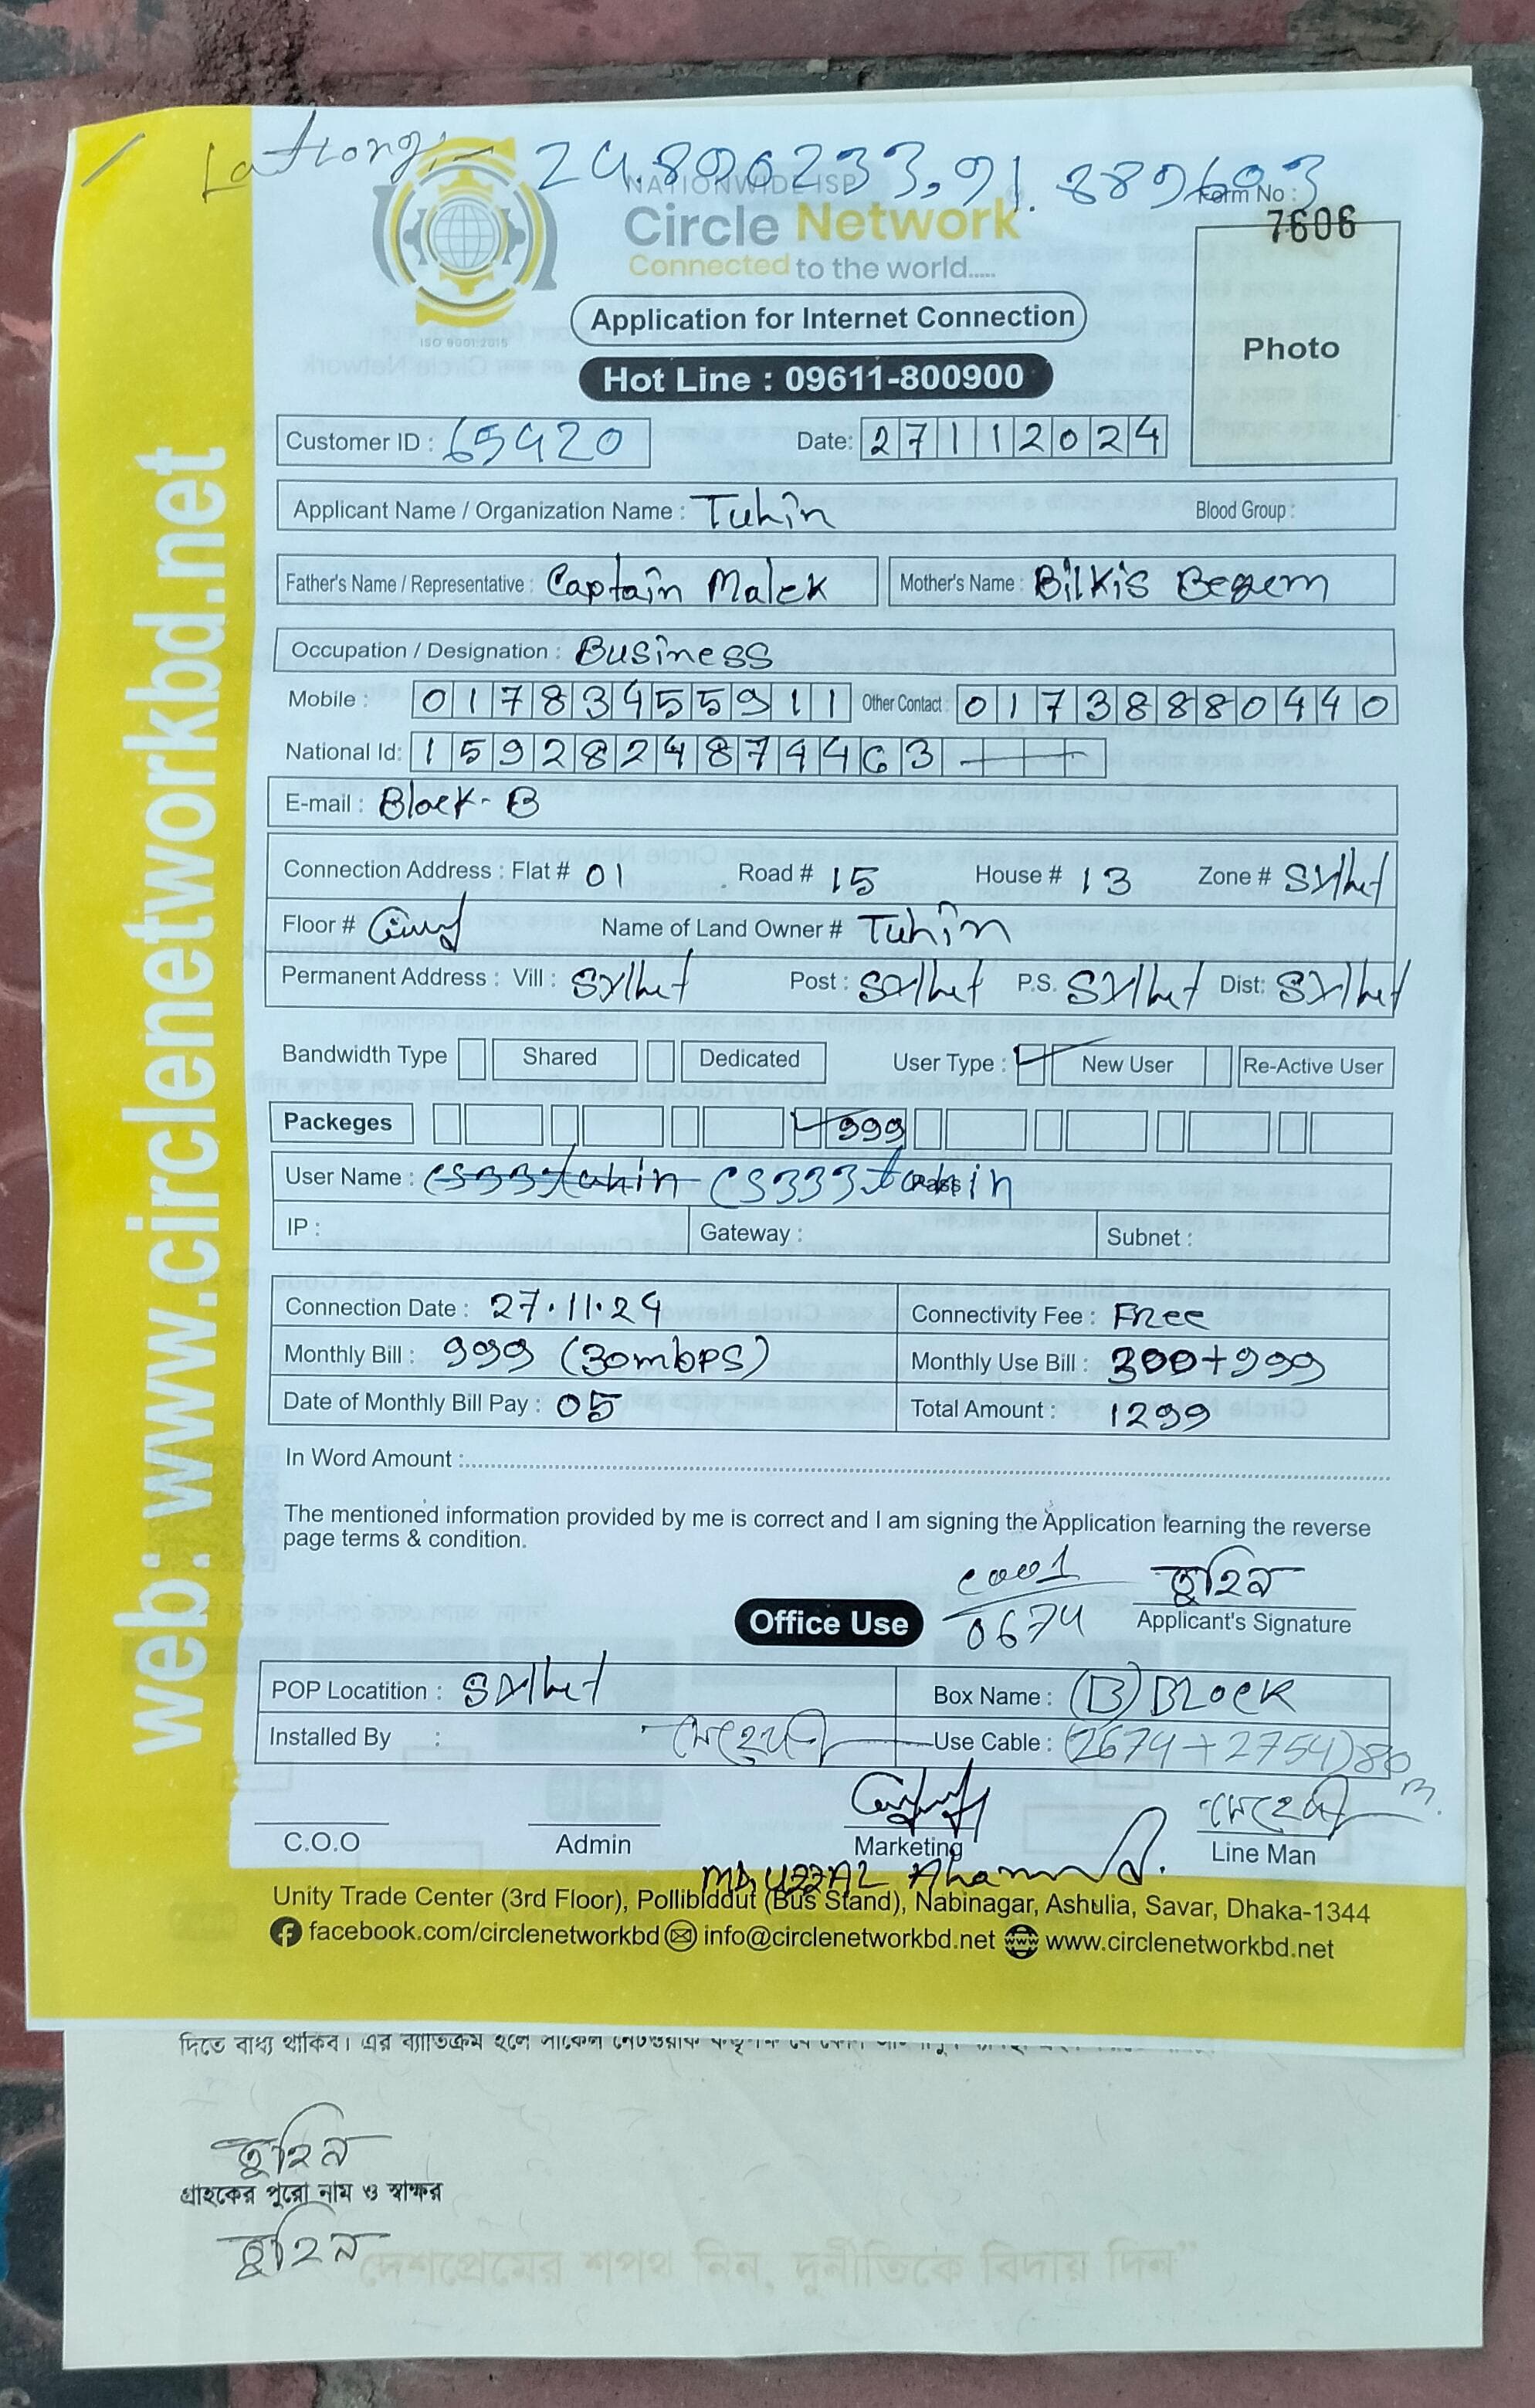 Lattong:- 24.890233,91.889603
NATIONWIDE ISP
Circle Network
Connected to the world.....
ISO 9001:2015
Form No :
7606
Photo
Application for Internet Connection
Hot Line : 09611-800900
Customer ID : 65920 Date: 27112024
Applicant Name / Organization Name : Tuhin Blood Group :
Father's Name / Representative : Captain Malek Mother's Name : Bilkis Begum
Occupation / Designation : Business
Mobile : 01783455911 Other Contact : 01738880440
National Id: 15928248794463
E-mail : Block-B
Connection Address : Flat # 01 Road # 15 House # 13 Zone # Sylhet
Floor # Name of Land Owner # Tuhin
Permanent Address : Vill : Sylhet Post : Sylhet P.S. Sylhet Dist: Sylhet
Bandwidth Type Shared Dedicated User Type : New User Re-Active User
Packeges 999
User Name : CS333tuhin CS333tuhin Pass
IP : Gateway : Subnet :
Connection Date : 27.11.24 Connectivity Fee : Free
Monthly Bill : 999 (30mbps) Monthly Use Bill : 300+999
Date of Monthly Bill Pay : 05 Total Amount : 1299
In Word Amount :
The mentioned information provided by me is correct and I am signing the Application learning the reverse
page terms & condition.
0674
তুহিন
Office Use
Applicant's Signature
POP Locatition : Sylhet Box Name : (B) Block
Installed By : মেহেদী Use Cable : (2674+2754)80m.
মেহেদী
C.O.O Admin Marketing Line Man
MD, UZZAL Ahammed.
Unity Trade Center (3rd Floor), Pollibiddut (Bus Stand), Nabinagar, Ashulia, Savar, Dhaka-1344
facebook.com/circlenetworkbd info@circlenetworkbd.net www.circlenetworkbd.net
web: www.circlenetworkbd.net
দিতে বাধ্য থাকিব। এর ব্যাতিক্রম হলে সার্কেল নেটওয়ার্ক কর্তৃপক্ষ যে কোন
তুহিন
গ্রাহকের পুরো নাম ও স্বাক্ষর
তুহিন
দেশপ্রেমের শপথ নিন, দুর্নীতিকে বিদায় দিন"